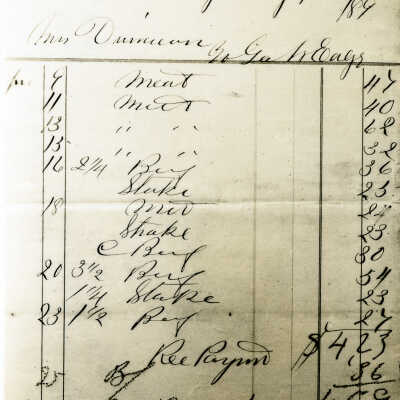 187
Mrs Dunneson to Geo W Eags
7 Meat 47
11 Meet 40
13 " " 62
15 " " 32
16 2 1/4 Beef 36
Stake 23
18 Meet 27
Shake 23
C Beef 30
20 3 1/2 Beef 54
1 1/4 Stake 23
23 1 1/2 Beef 27
Rec Paymt $4 23
25 By 86